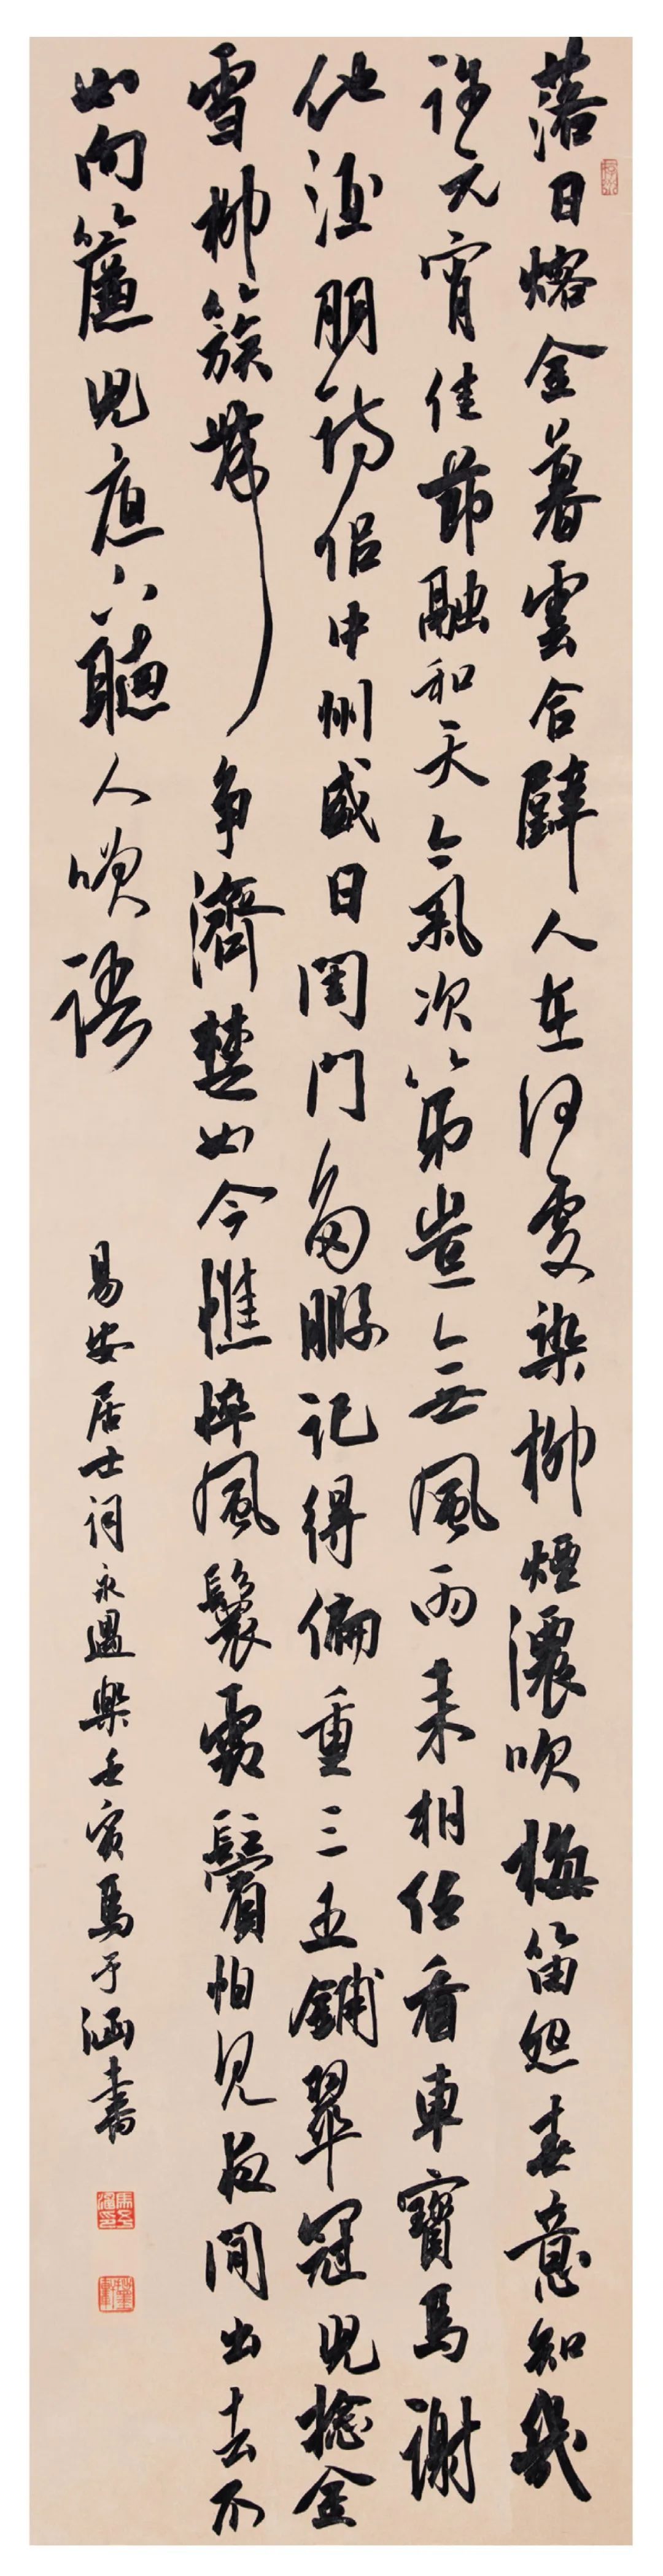 落日熔金暮雲合璧人在何處染柳煙濃吹梅笛怨春意知幾
許元宵佳節融和天氣次第豈無風雨來相伍看車寶馬謝
他酒朋詩侶中州盛日閨門多暇記得偏重三五鋪翠冠兒撚金
雪柳簇帶爭濟楚如今憔悴風鬟霜鬢怕見夜間出去不
如向簾兒底下聽人笑語
易安居士詞永遇樂壬寅馬于涵書